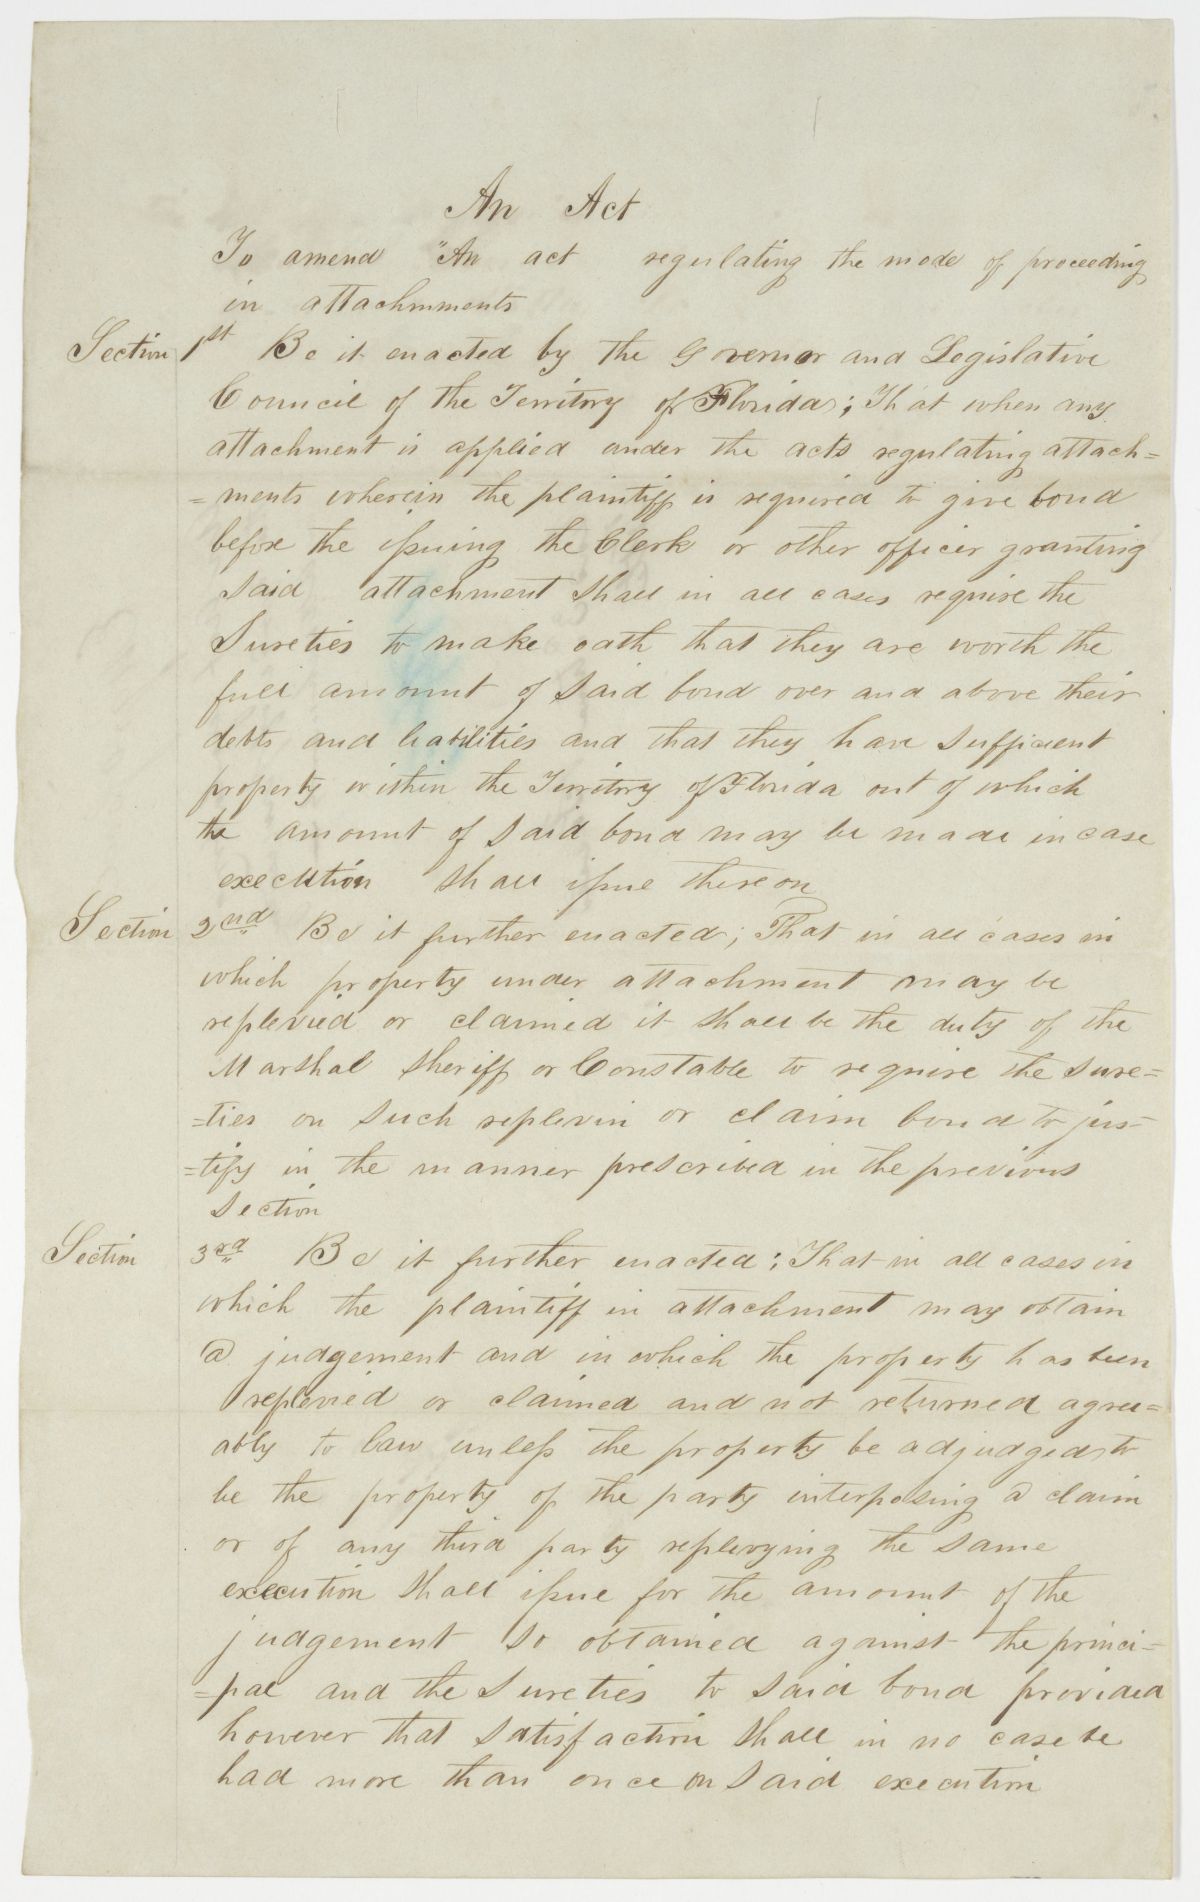 An Act
To amend "An act regulating the mode of proceeding
in attachmments
Section 1st Be it enacted by the Governor and Legislative
Council of the Territory of Florida; That when any
attachment is applied under the acts regulating attach=
=ments wherein the plaintiff is required to give bond
before the issuing the Clerk or other officer granting
said attachment shall in all cases require the
Sureties to make oath that they are worth the
full amount of said bond over and above their
debts and liabilities and that they have sufficient
property within the Territory of Florida out of which
the amount of said bond may be made in case
execution shall issue thereon
Section 2nd Be it further enacted; That in all cases in
which property under attachment may be
replevied or claimed it shall be the duty of the
Marshal Sheriff or Constable to require the sure=
=ties on such replevin or claim bond to jus=
=tify in the manner prescribed in the previous
Section
Section 3rd Be it further enacted; That in all cases in
which the plaintiff in attachment may obtain
a judgement and in which the property has been
replevied or claimed and not returned agree=
ably to law unless the property be adjudged to
be the property of the party interposing a claim
or of any third party replevying the same
execution shall issue for the amount of the
judgement so obtained against the princi=
=pal and the sureties to said bond provided
however that satisfaction shall in no case be
had more than once on said execution